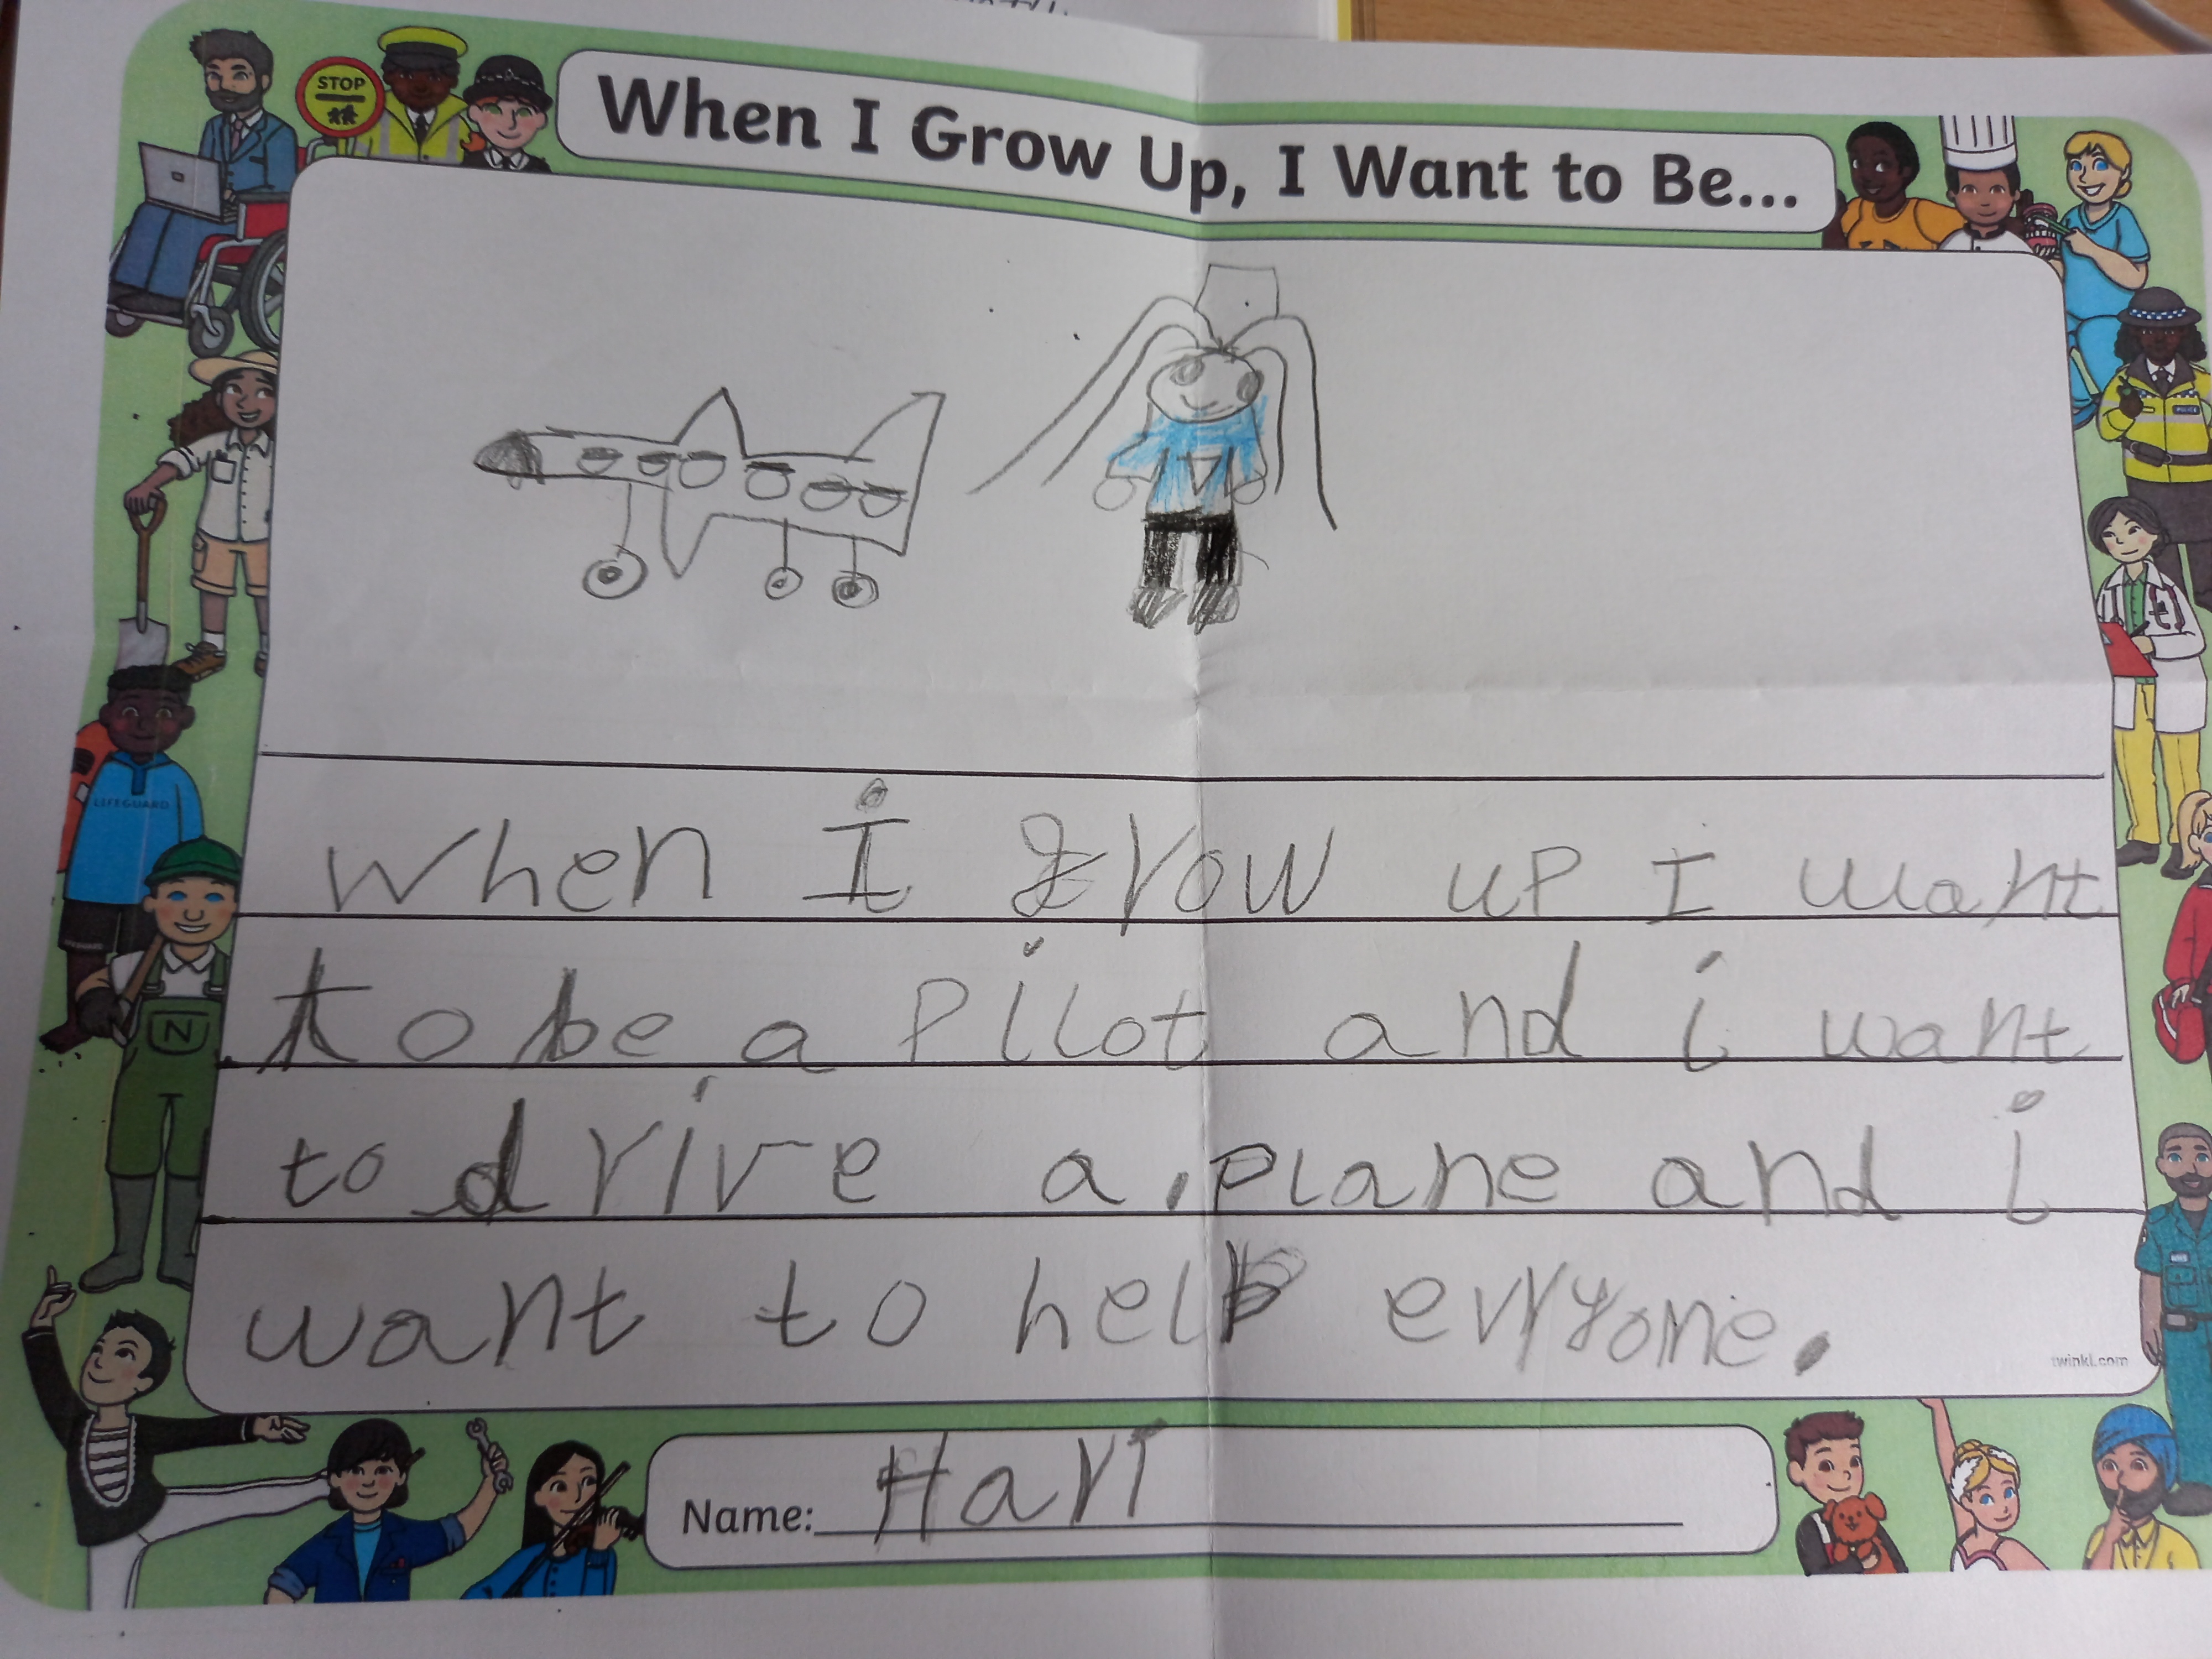 When I Grow Up, I Want to Be...
STOP
LIFEGUARD
N
POLICE
When I grow up I want
to be a pilot and i want
to drive a plane and i
want to help evryone.
twinkl.com
Name: Hari